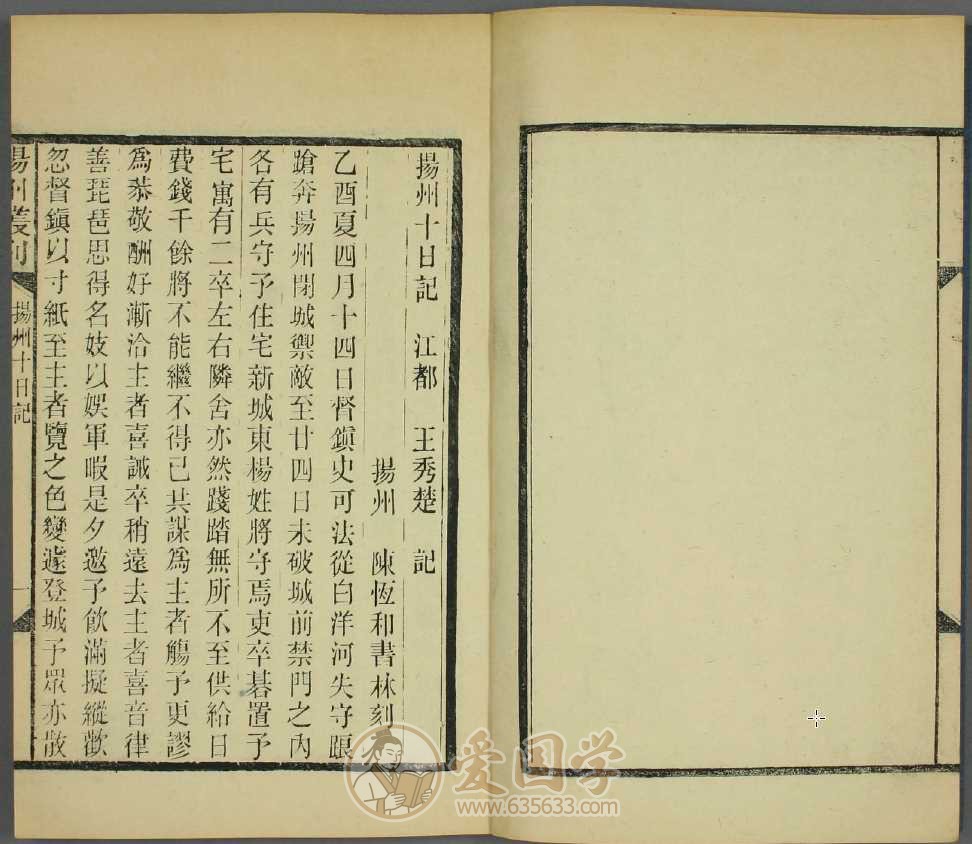 揚州十日記 江都 王秀楚 記
揚州 陳恆和書林刻
乙酉夏四月十四日督鎭史可法從白洋河失守踉
蹌奔揚州閉城禦敵至廿四日未破城前禁門之內
各有兵守予住宅新城東楊姓將守焉吏卒碁置予
宅寓有二卒左右隣舍亦然踐踏無所不至供給日
費錢千餘將不能繼不得已共謀爲主者觴予更謬
爲恭敬酬好漸洽主者喜誡卒稍遠去主者喜音律
善琵琶思得名妓以娛軍暇是夕邀予飮滿擬縱歡
忽督鎭以寸紙至主者覽之色變遽登城予眾亦散
揚州叢刊
揚州十日記
一
爱国学
www.635633.com